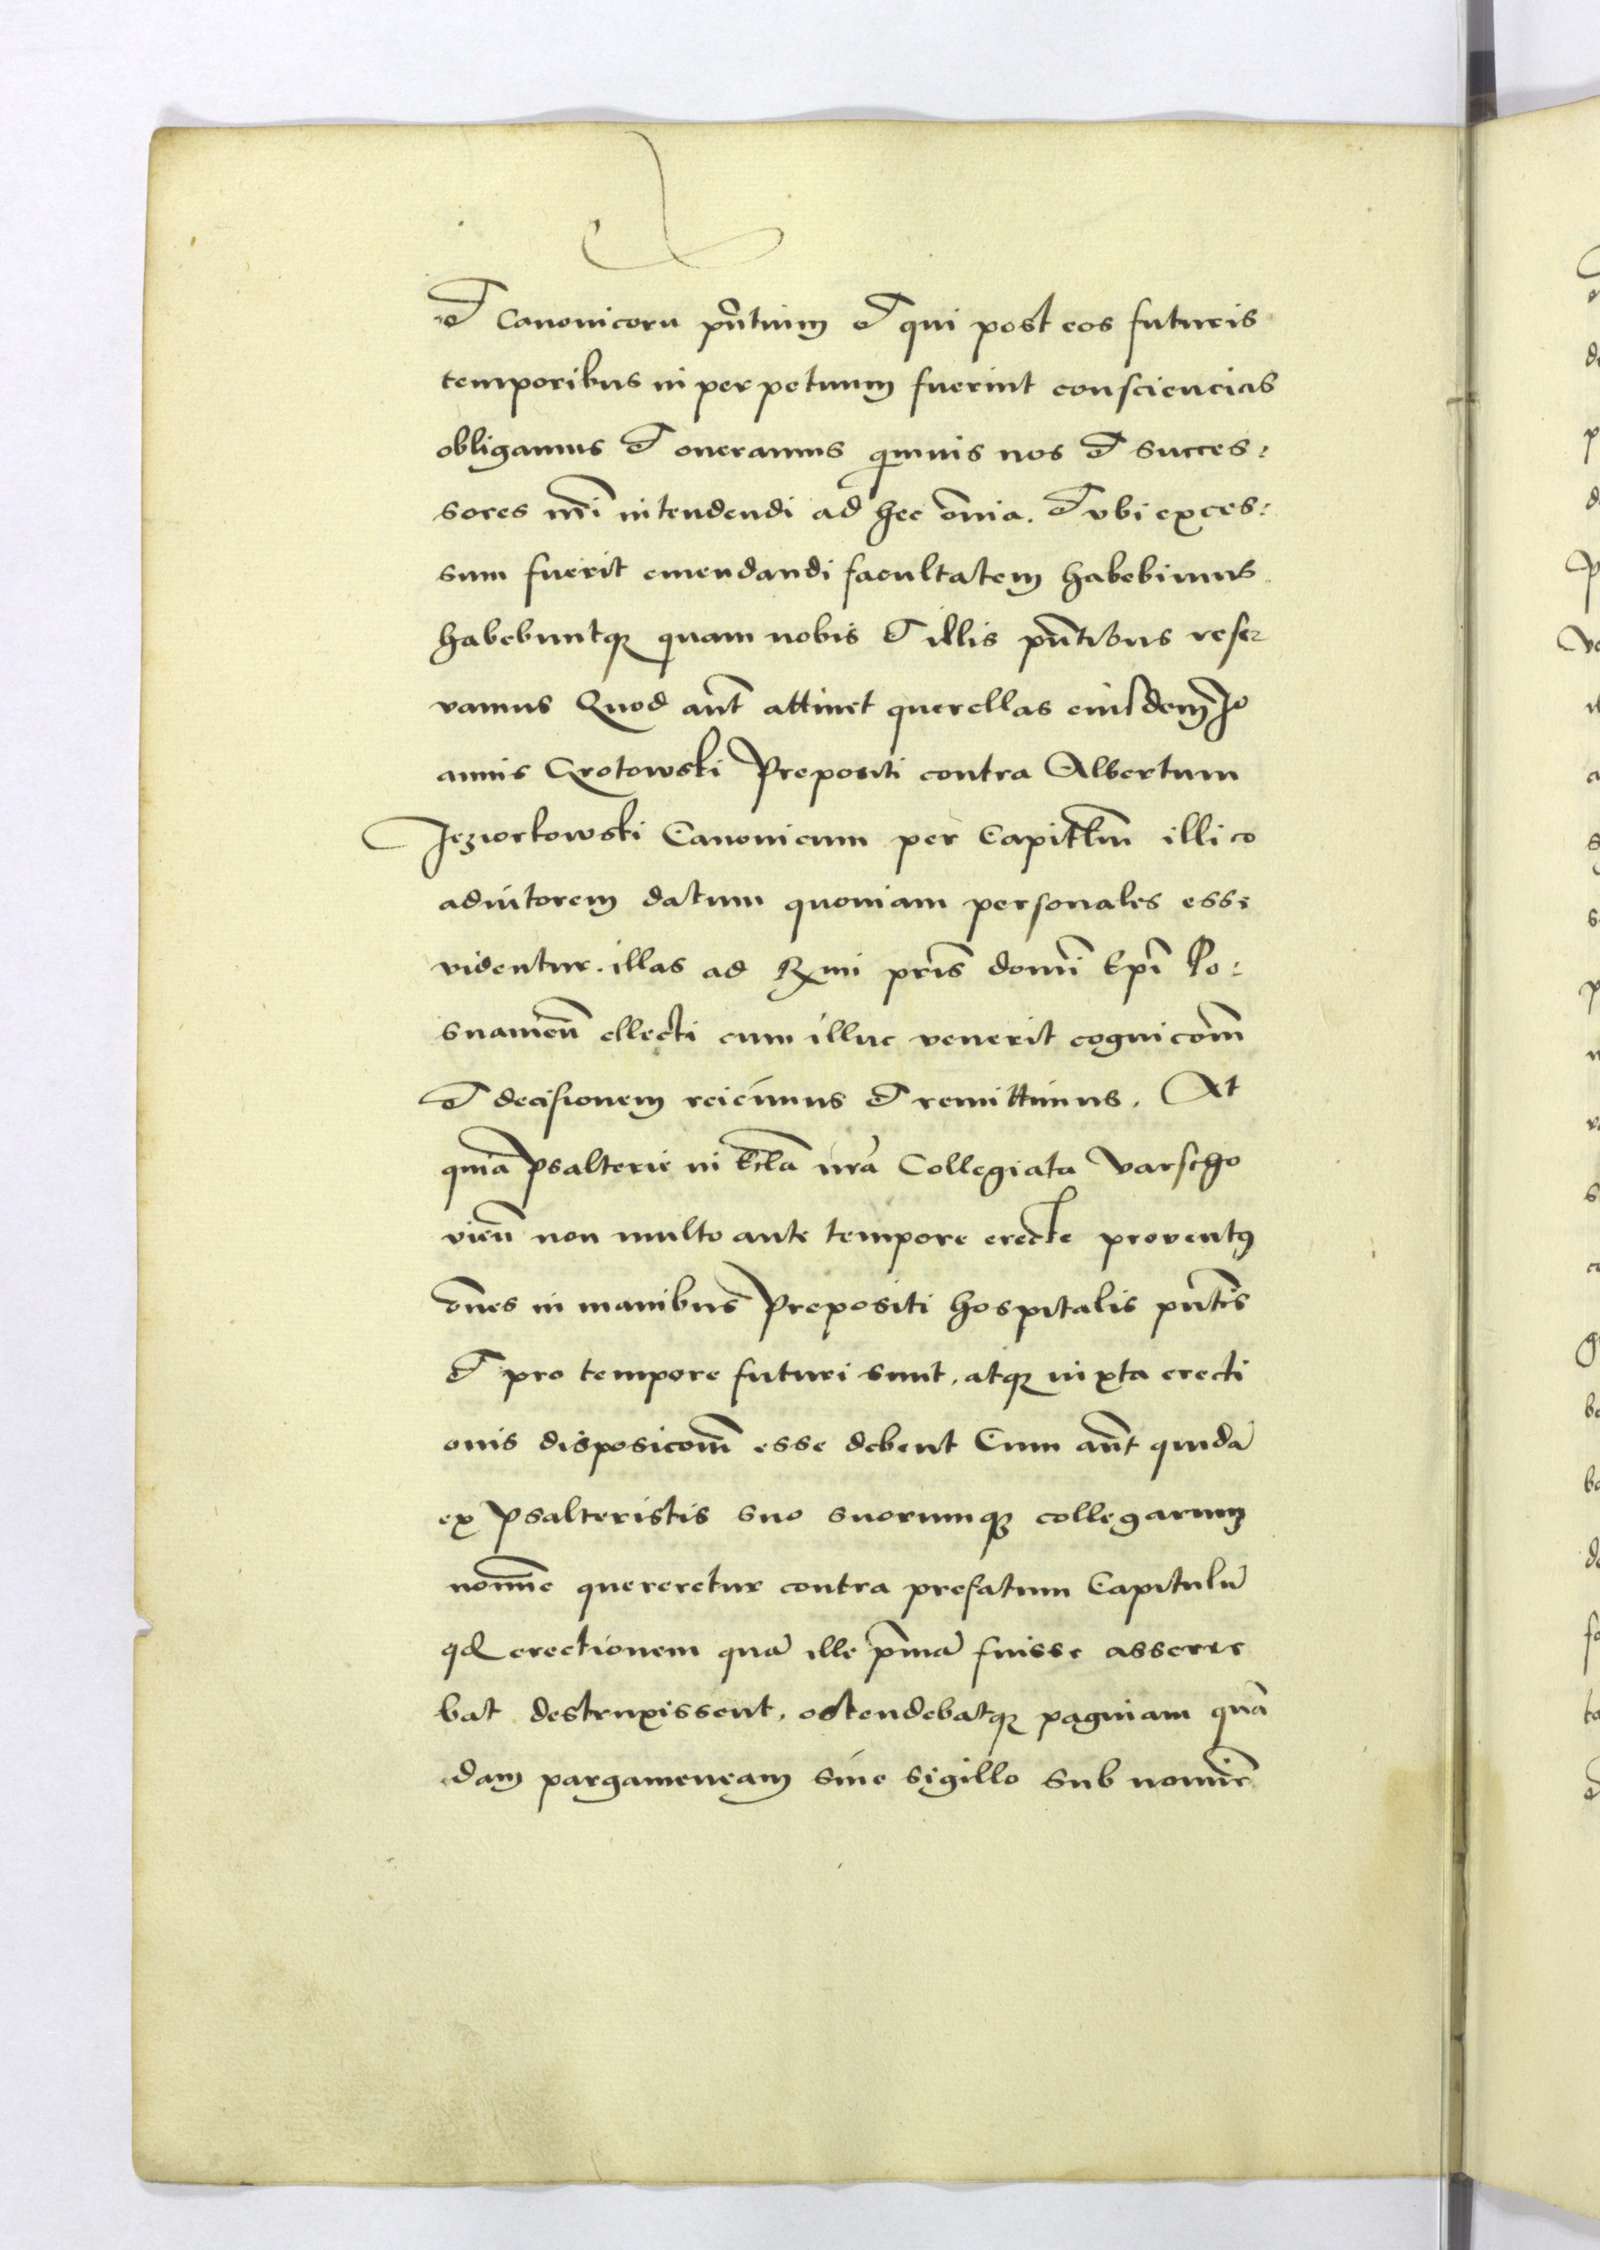 et Canonicoru pn̄tium et qui post eos futuris
temporibus in perpetuum fuerint consciencias
obligamus et oneramus qmuis nos et succes:
sores nr̄i intendendi ad hec om̄ia. et vbi exces:
sum fuerit emendandi facultatem habebimus
habebuntqȝ quam nobis et illis pn̄tibus reser
vamus Quod aut̄ attinet querellas eiusdem Jo
annis Grotowski Prepositi contra Albertum
Jeziorkowski Canonicum per Capitlm̄ illi co
adiutorem datum quoniam personales esse
videntur. illas ad Rmi pr̄is domī Epī Po:
snanien̄ ellecti cum illuc venerit cognicom̄
et decisionem reicimus et remittimus. At
quia Psalterie in Eccla nrā Collegiata Varscho
vien̄ non multo ante tempore erecte proventꝯ
om̄es in manibus Prepositi hospitalis pn̄tis
et pro tempore futuri sunt, atqȝ iuxta erecti
onis disposicom̄ esse debent Cum aut̄ quidā
ex Psalteristis suo suorumqȝ collegarum
nomīe quereretur contra prefatum Capitulū
qd erectionem quā ille p̄mā fuisse assere
bat destruxissent, ostendebatqȝ paginam quā
dam pargameneam sine sigillo sub nomīe